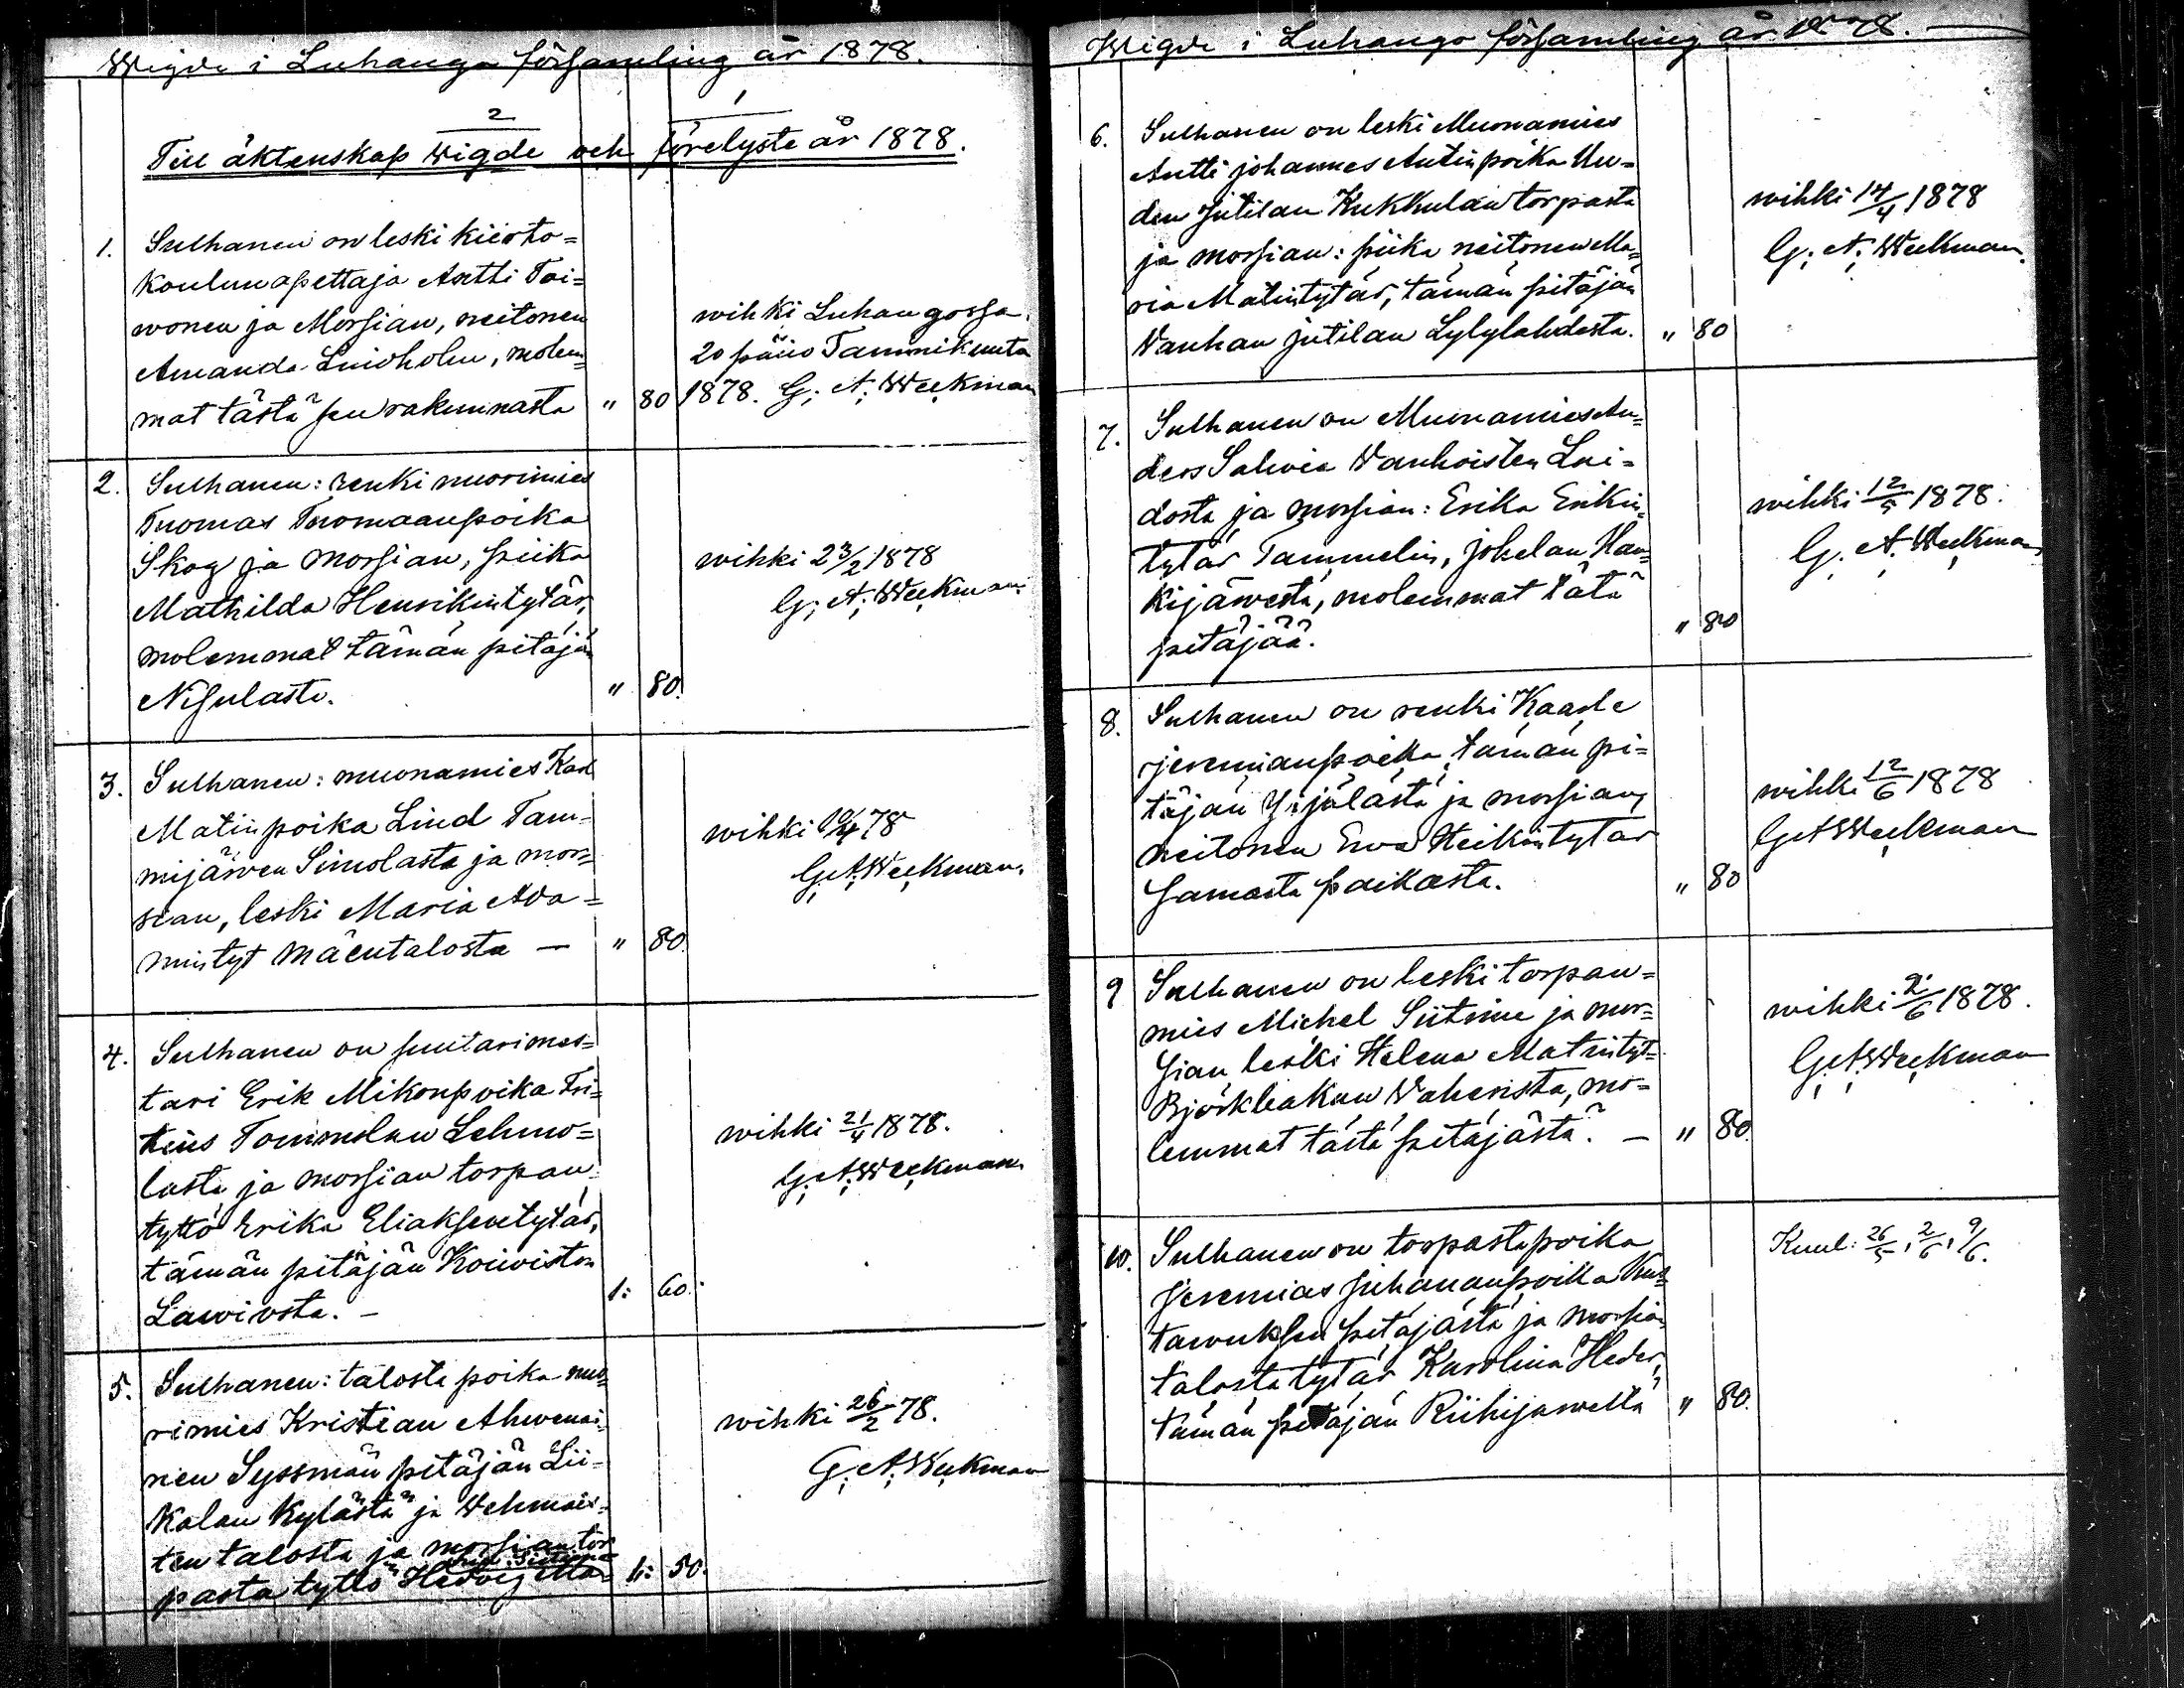 Wigde i Luhanga församling år 1878.
2
1
Till äktenskap wigde och förelyste år 1878.
1. Sulhanen on leski kierto=
koulunopettaja Antti Toi=
wonen ja Morsian, neitonen
Amanda Lindholm, molem=
mat tästä seurakunnasta " 80
wihki Luhangossa
20 päiv Tammikuuta
1878. G. A. Weckman
2. Sulhanen: renki nuorimies
Tuomas Tuomaanpoika
Skog ja morsian, piika
Mathilda Henrikintytär,
molemmat tämän pitäjän
Nisulasta. " 80.
wihki 23/2 1878
G. A. Weckman
3. Sulhanen: muonamies Karl
Matinpoika Lind Tam=
mijärwen Simolasta ja mor=
sian, leski Maria Ada=
mintyt Mäentalosta — " 80.
wihki 10/4 78
G. A. Weckman.
4. Sulhanen on suutarimes=
tari Erik Mikonpoika Fri=
Tommolan Lehmo=
lasta ja morsian torpan
tyttö Erika Eliaksentytär,
tämän pitäjän Koiwiston
1: 60.
wihki 21/4 1878.
G. A. Weckman
5. Sulhanen: talosta poika nuo=
rimies Kristian Ahwenai=
nen Syssmän pitäjän Lii=
kolan kylästä ja Wehmais=
ten talosta ja morsian tor
pasta tyttö Hedvig Ma= 1: 50.
wihki 26/2 78.
G. A. Weckman
Wigde i Luhanga församling år 1878. —
6. Sulhanen on leski Muonamies
Antti johannes Antinpoika Uu=
den Jutilan Kukkulan torpasta
ja morsian: piika neitonen Ma=
ria Matintytär, tämän pitäjän
Wanhan jutilan Lylylahdesta. " 80
wihki 14/4 1878
G. A. Weckman.
7. Sulhanen on Muonamies An=
ders Salwia Wanhoisten Lai=
dosta ja morsian: Erika Erikin=
tytär Tammelin, Jokelan Hau=
kijärwestä, molemmat tätä
pitäjää. " 80
wihki 12/5 1878.
G. A. Weckman
8. Sulhanen on renki Kaarle
jeremianpoika, tämän pi=
täjän Ylijälästä ja morsian,
neitonen Ewa Heikintytär
samasta paikasta. " 80
wihki 12/6 1878
G A Weckman
9 Sulhanen on leski torpan=
mies Michel Siitoine ja mor=
sian leski Helena Matintyt=
Björkbakan Waherista, mo=
lemmat tästä pitäjästä. — " 80.
wihki 2/6 1878.
G. A. Weckman
10. Sulhanen on torpasta poika
Jeremias Juhananpoika Kus=
tawuksen pitäjästä ja morsian
talosta tytär Karolina Heder,
tämän pitäjän Riihijärwellä " 80.
Kuul: 26/5, 2/6, 9/6.